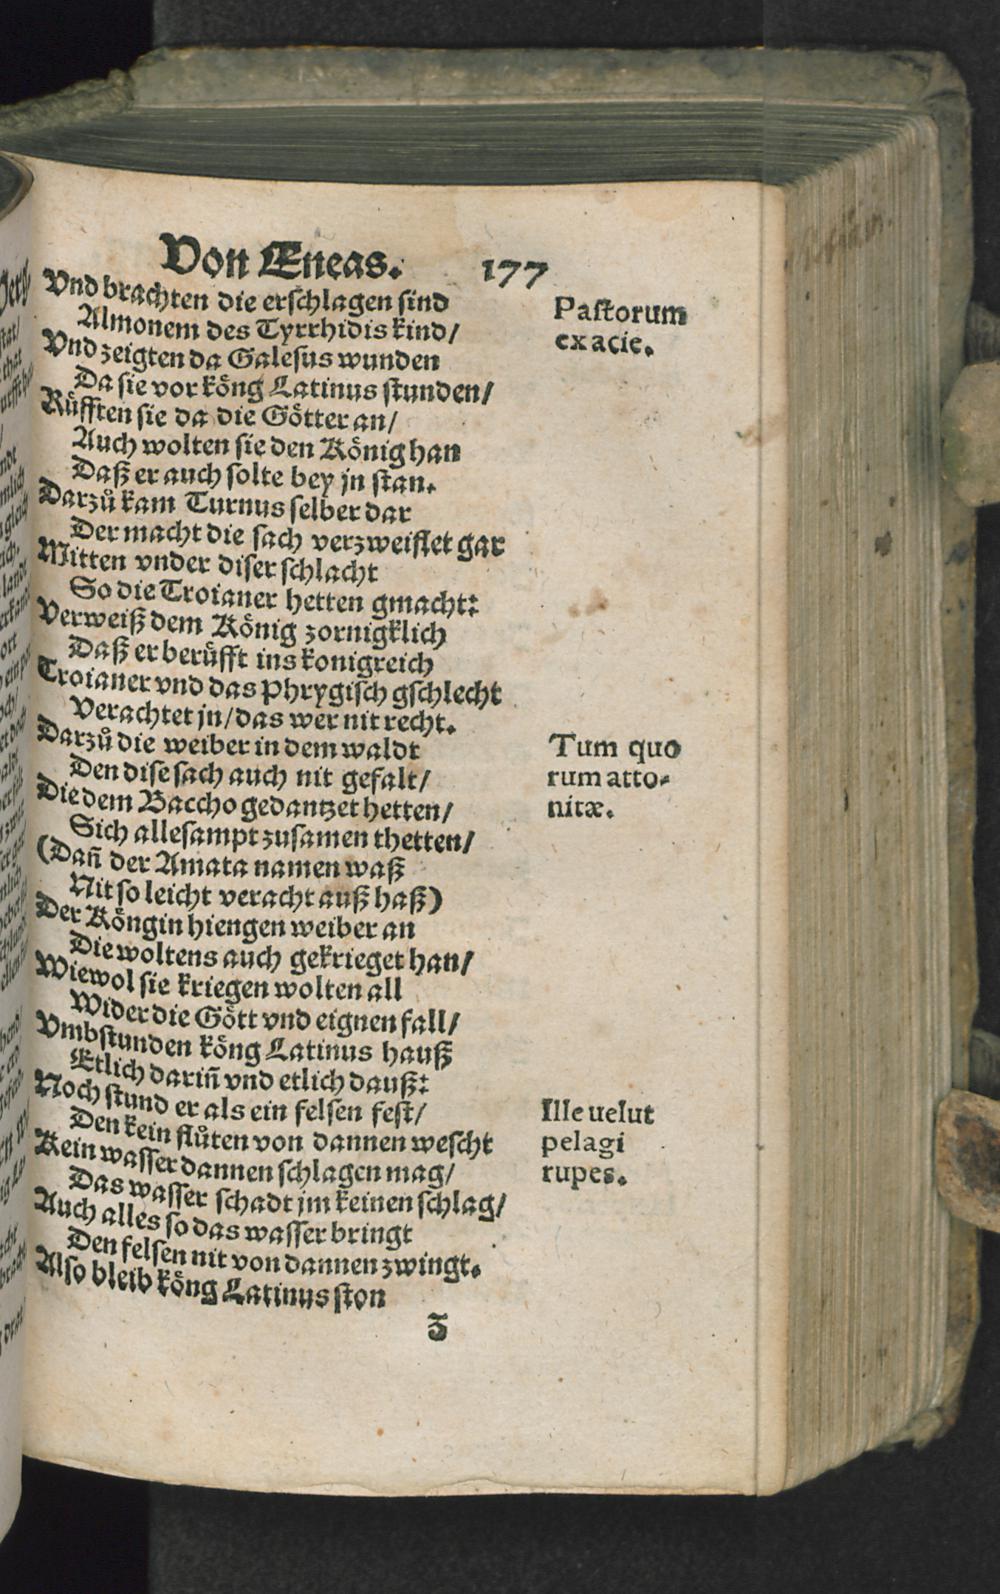 Von Æneas. 177
Vnd brachten die erschlagen sind
Almonem des Tyrrhidis kind/
Vnd zeigten da Galesus wunden
Da sie vor köng Latinus stunden/
Rüfften sie da die Götter an/
Auch wolten sie den König han
Daß er auch solte bey jn stan.
Darzů kam Turnus selber dar
Der macht die sach verzweiflet gar
Mitten vnder diser schlacht
So die Troianer hetten gmacht:
Verweiß dem König zornigklich
Daß er berüfft ins konigreich
Troianer vnd das Phrygisch gschlecht
Verachtet jn/ das wer nit recht.
Darzů die weiber in dem waldt
Den dise sach auch nit gefalt/
Die dem Baccho gedantzet hetten/
Sich allesampt zusamen thetten/
(Dañ der Amata namen waß
Nit so leicht veracht auß haß)
Der Köngin hiengen weiber an
Die woltens auch gekrieget han/
Wiewol sie kriegen wolten all
Wider die Gött vnd eignen fall/
Vmbstunden köng Latinus hauß
Etlich dariñ vnd etlich dauß:
Noch stund er als ein felsen fest/
Den kein flůten von dannen wescht
Kein wasser dannen schlagen mag/
Das wasser schadt jm keinen schlag/
Auch alles so das wasser bringt
Den felsen nit von dannen zwingt.
Also bleib köng Latinus ston
Z
Pastorum
ex acie.
Tum quo
rum atto-
nitæ.
Ille uelut
pelagi
rupes.